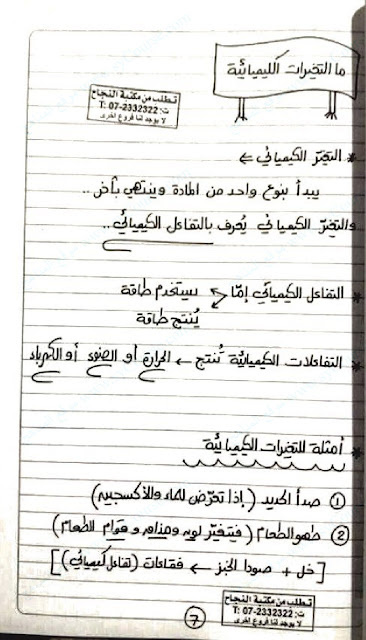 ما التغيرات الكيميائية
تطلب من مكتبة النجاح
ت: 2332322-07 T:
لا يوجد لنا فروع اخرى
* التغيّر الكيميائي ←
يبدأ بنوع واحد من المادة وينتهي بآخر ..
والتغيّر الكيميائي يُعرف بالتفاعل الكيميائي ..
* التفاعل الكيميائي إمّا يستخدم طاقة
يُنتج طاقة
* التفاعلات الكيميائية تُنتج ← الحرارة أو الضوء أو الكهرباء
* أمثلة للتغيرات الكيميائية
① صدأ الحديد (إذا تعرّض للماء والأكسجين)
② طهو الطعام (فيتغيّر لونه ومذاقه وقوام الطعام)
[خل + صودا الخبز ← فقاعات (تفاعل كيميائي)]
تطلب من مكتبة النجاح
ت: 2332322-07 T:
لا يوجد لنا فروع اخرى
7